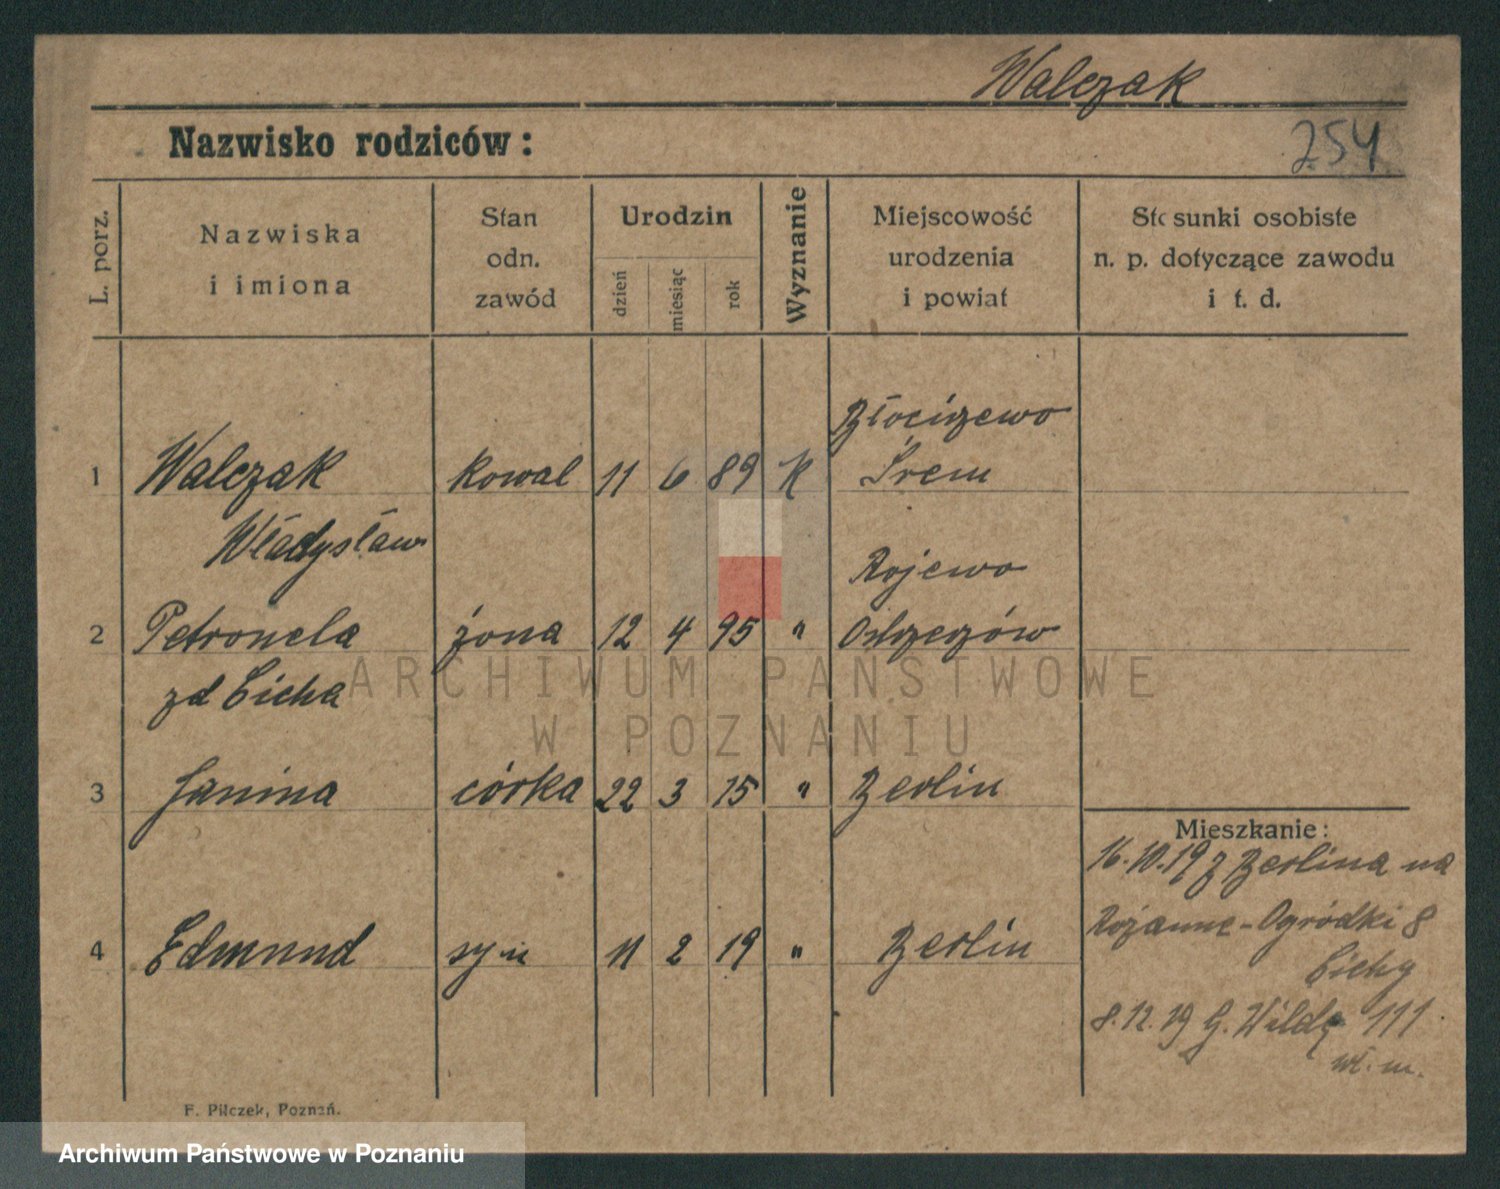 Walczak
Nazwisko rodziców:
254
L. porz.
Nazwiska
i imiona
Stan
odn.
zawód
Urodzin
dzień
miesiąc
rok
Wyznanie
Miejscowość
urodzenia
i powiat
Stosunki osobiste
n. p. dotyczące zawodu
i t. d.
Błociszewo
1 Walczak kowal 11 6 89 K Śrem
Władysław
Rojewo
2 Petronela żona 12 4 95 "
zd Cicha
3 Janina córka 22 3 15 " Berlin
4 Edmund syn 11 2 19 " Berlin
Mieszkanie:
16.10.19 z Berlina na
Ogródki 8
Cichy
8.12.19 G. Wilda 111
wł. m.
F. Pilczek, Poznań.
ARCHIWUM PAŃSTWOWE
W POZNANIU
Archiwum Państwowe w Poznaniu